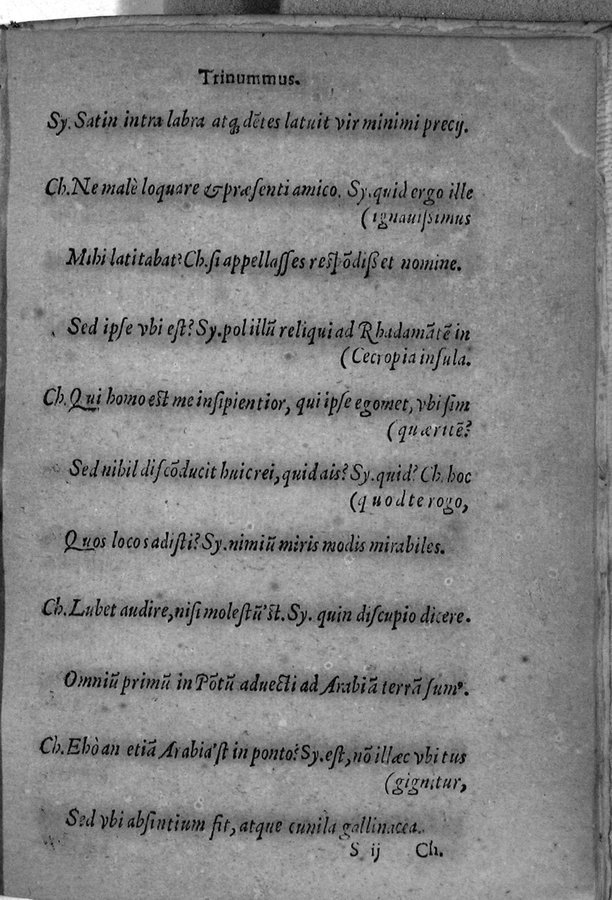 Trinummus.
Sy. Satin intra labra atq; dẽtes latuit vir minimi precij.
Ch. Ne malè loquare & præsenti amico. Sy. quid ergo ille
(ignauissimus
Mihi latitabat? Ch. si appellasses respõdisset nomine.
Sed ipse vbi est? Sy. pol illũ reliqui ad Rhadamãtẽ in
(Cecropia insula.
Ch. Qui homo est me insipientior, qui ipse egomet, vbi sim
(quæritẽ?
Sed nihil discõducit huic rei, quid ais? Sy. quid? Ch. hoc
(quod te rogo,
Quos locos adisti? Sy. nimiũ miris modis mirabiles.
Ch. Lubet audire, nisi molestũ'st. Sy. quin discupio dicere.
Omniũ primũ in Põtũ aduecti ad Arabiã terrã sumꝰ.
Ch. Ehò an etiã Arabia'st in ponto? Sy. est, nõ illæc vbi tus
(gignitur,
Sed vbi absintium fit, atque cunila gallinacea.
S ij Ch.